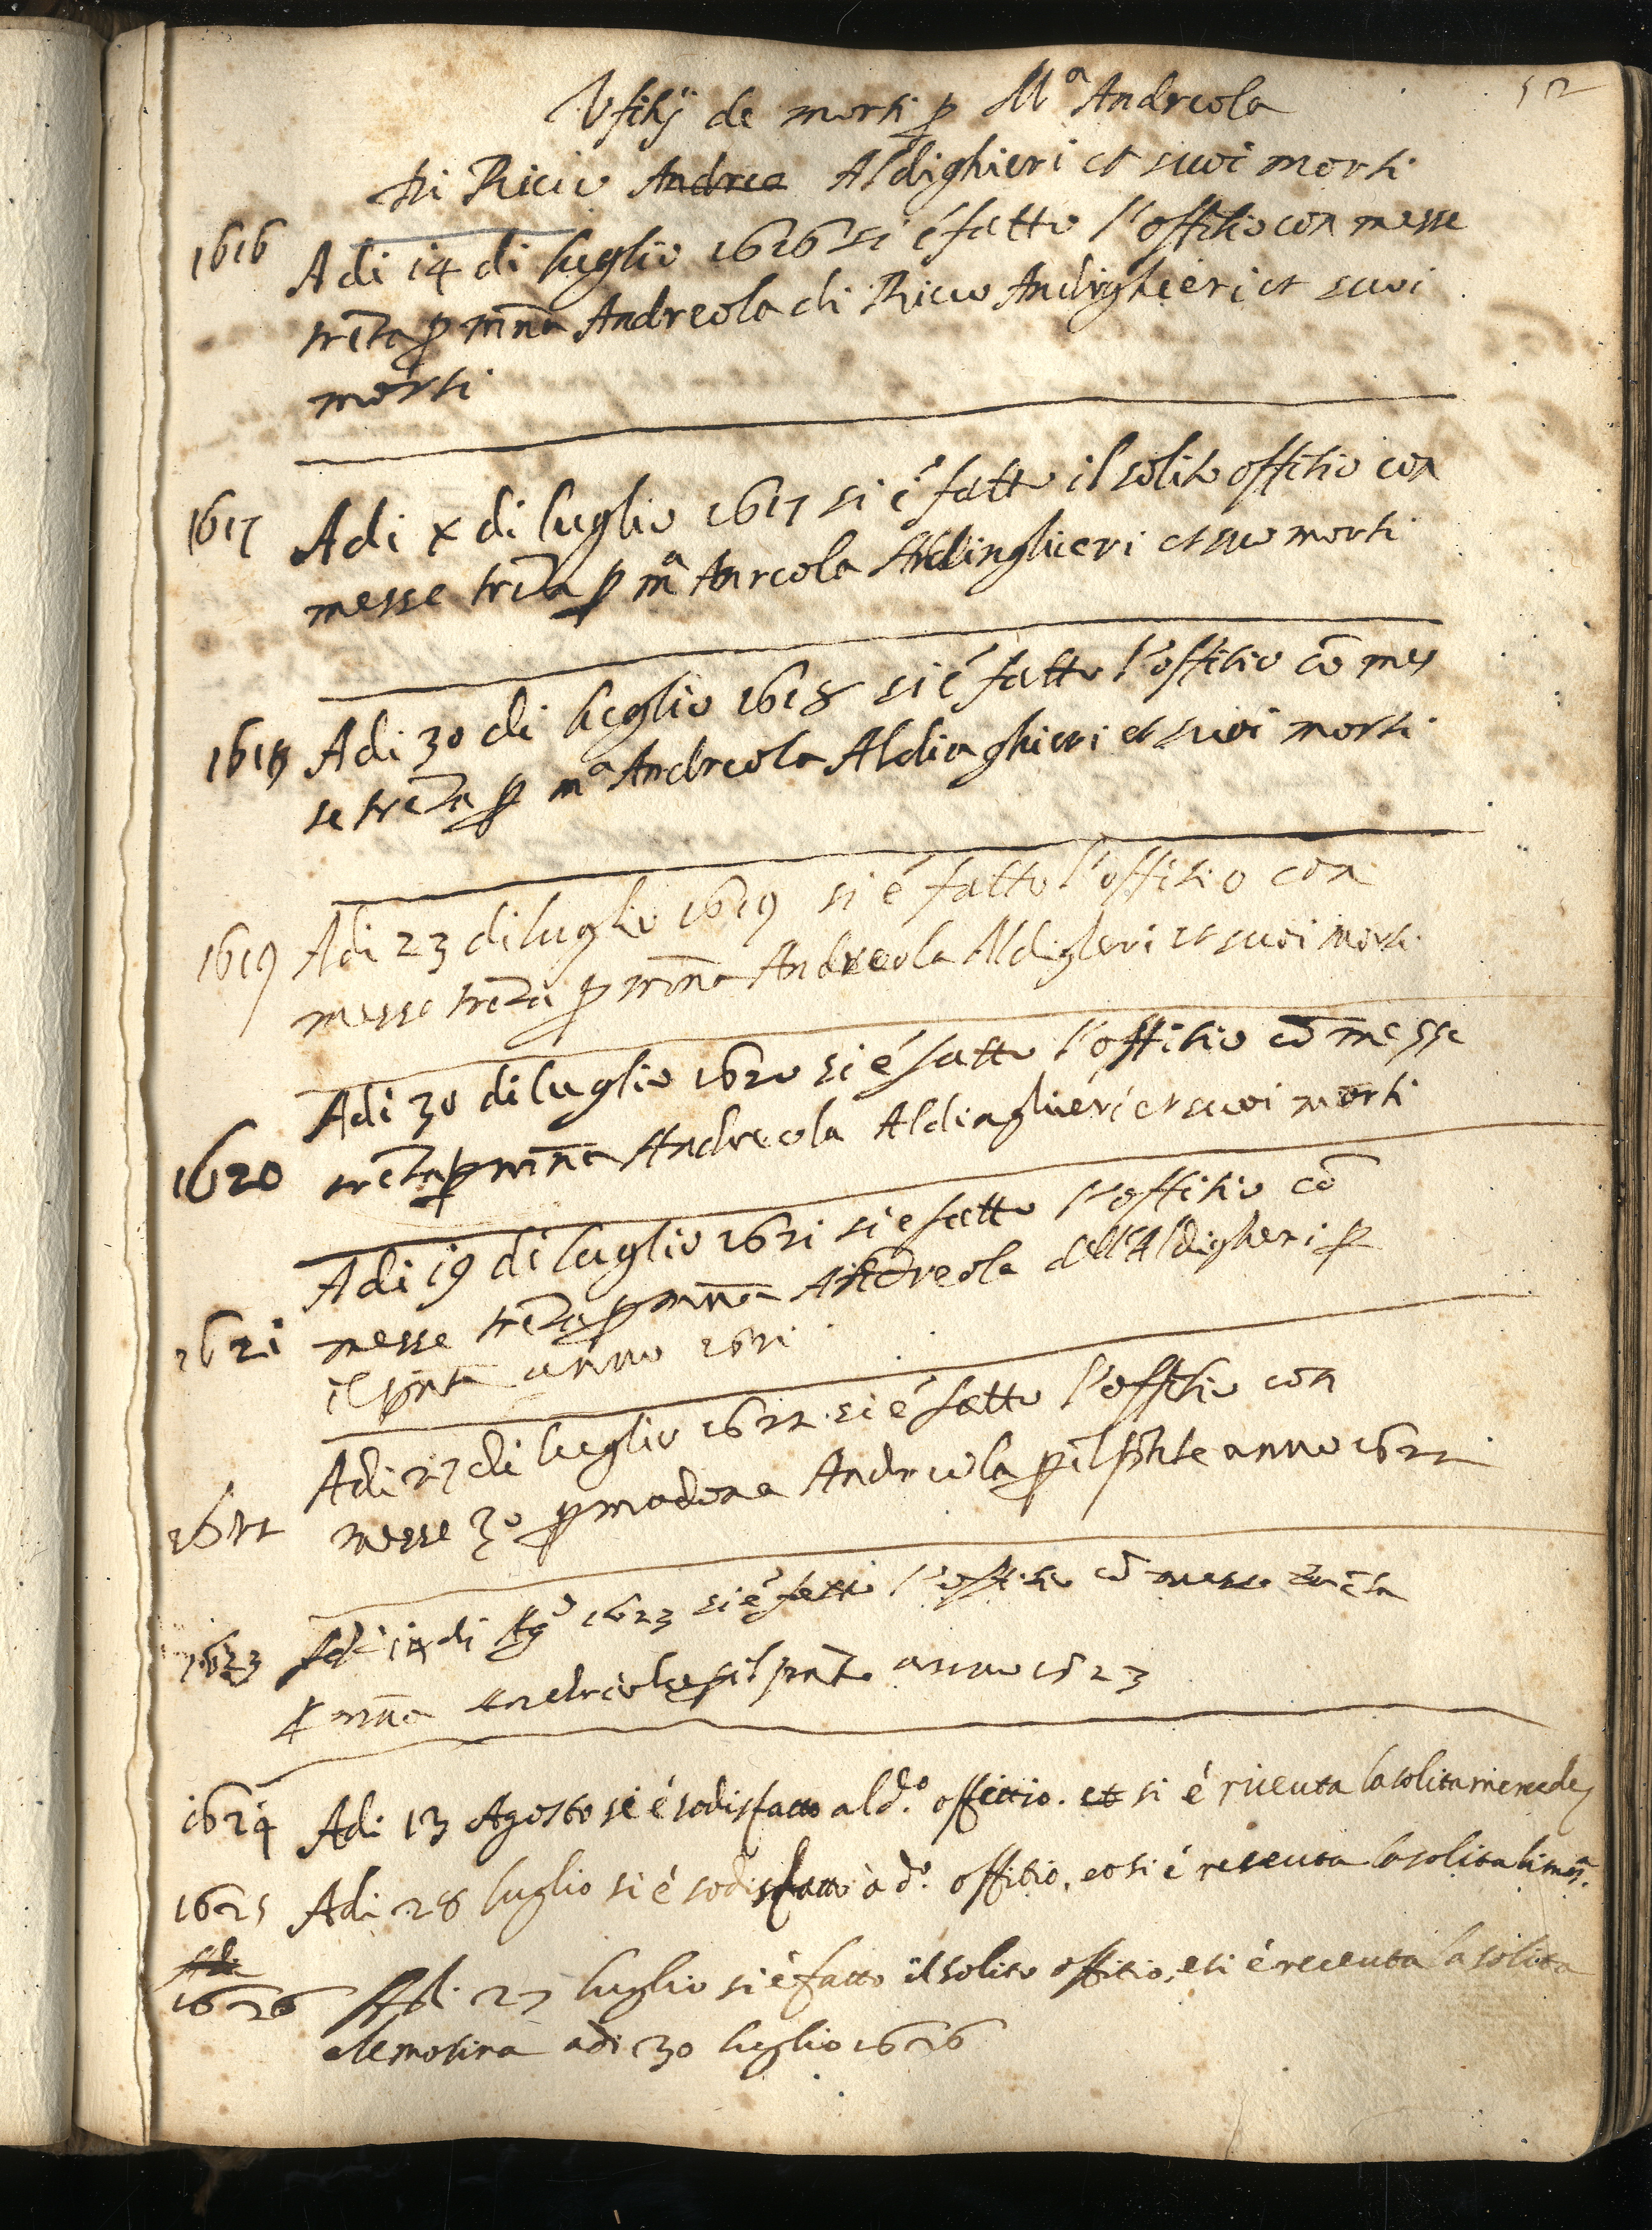 52
Vfitij de morti p Mª Andreola
di Ricio Andrea Aldighieri et suoi morti
1616 Adi 14 di luglio 1616 si é fatto l'offitio con messe
treta p mña Andreola di Ricio Andighieri et suoi
morti
1617 Adi x di luglio 1617 si é fatto il solito offitio con
messe treta p mª Anreola Aldinghieri et suo morti
1618 Adi 30 di luglio 1618 si é fatto l'offitio cō mes
se treta p mª Andreola Aldinghieri et suoi morti
1619 Adi 23 di luglio 1619 si é fatto l'offitio con
messe treta p mña Andreola Aldigleri et suoi morti
Adi 30 di luglio 1620 si é fatto l'offitio cō messe
1620 treta p mña Andreola Aldinghieri et suoi morti
Adi 19 di luglio 1621 si e fatto l'offitio cō
1621 messe treta p mña Andreola dell'Aldigheri p
il pñte anno 1621
Adi 27 di luglio 1622 si é fatto l'offitio con
1622 messe 30 p madona Andreola p il pñte anno 1622
1623 Adi 14 di Agº 1623 si é fatto l'offitio cō messe treta
p mña Andreola p il pñte anno 1623
1624 Adi 13 Agosto si é sodisfatto al dº. offittio. et si é riceuta la solita mercede
1625 Adi 28 luglio si é sodisfatto à dº. offitio, et si é receuta la solita limosª.
Adi
1626 Adi 27 luglio si é fatto il solito offitio, e si é receuta la solita
elemosina adi 30 luglio 1626